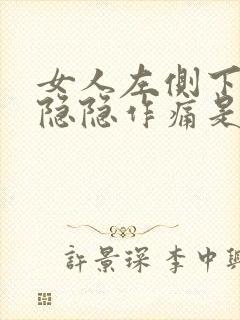 女人左侧下
隐隐作痛是
許景琛 李中興